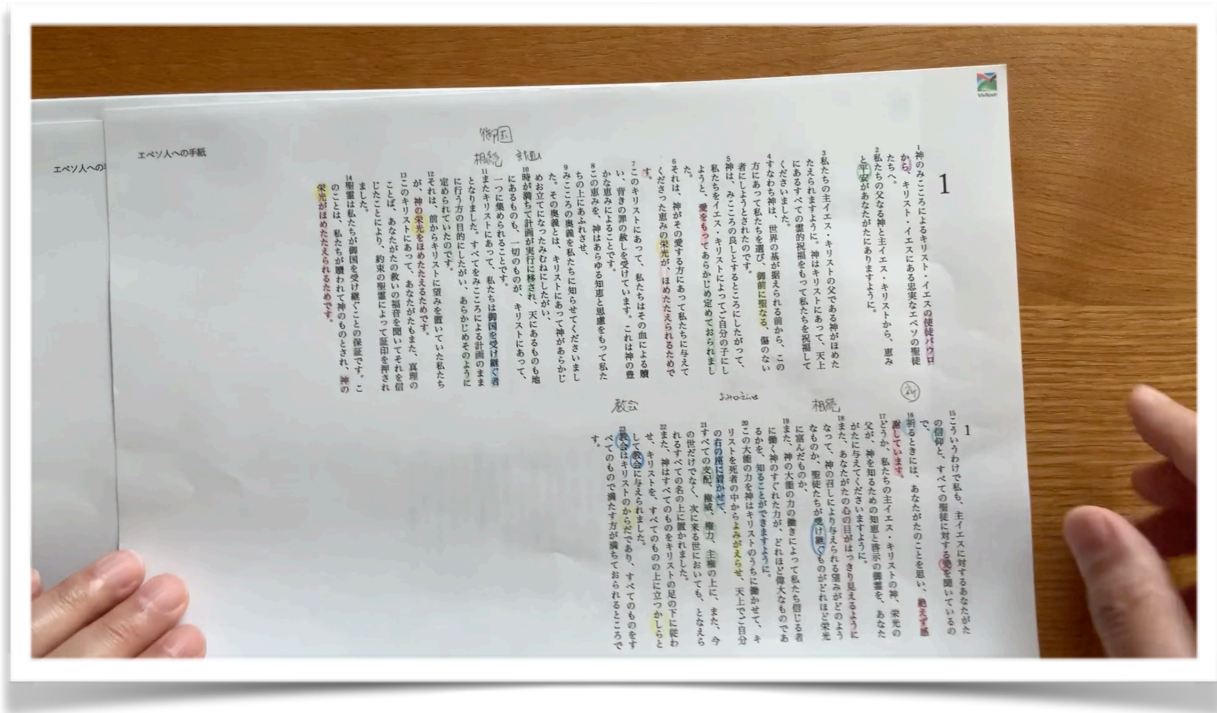 エペソ人への手紙
エペソ人への
御国
相続 計画
1
1神のみこころによるキリスト・イエスの使徒パウロ
から、キリスト・イエスにある忠実なエペソの聖徒
たちへ。
2私たちの父なる神と主イエス・キリストから、恵み
と平安があなたがたにありますように。
3私たちの主イエス・キリストの父である神がほめた
たえられますように。神はキリストにあって、天上
にあるすべての霊的祝福をもって私たちを祝福して
くださいました。
4すなわち神は、世界の基が据えられる前から、この
方にあって私たちを選び、御前に聖なる、傷のない
者にしようとされたのです。
5神は、みこころの良しとするところにしたがって、
私たちをイエス・キリストによってご自分の子にし
ようと、愛をもってあらかじめ定めておられまし
た。
6それは、神がその愛する方にあって私たちに与えて
くださった恵みの栄光が、ほめたたえられるためで
す。
7このキリストにあって、私たちはその血による贖
い、背きの罪の赦しを受けています。これは神の豊
かな恵みによることです。
8この恵みを、神はあらゆる知恵と思慮をもって私た
ちの上にあふれさせ、
9みこころの奥義を私たちに知らせてくださいまし
た。その奥義とは、キリストにあって神があらかじ
めお立てになったみむねにしたがい、
10時が満ちて計画が実行に移され、天にあるものも地
にあるものも、一切のものが、キリストにあって、
一つに集められることです。
11またキリストにあって、私たちは御国を受け継ぐ者
となりました。すべてをみこころによる計画のまま
に行う方の目的にしたがい、あらかじめそのように
定められていたのです。
12それは、前からキリストに望みを置いていた私たち
が、神の栄光をほめたたえるためです。
13このキリストにあって、あなたがたもまた、真理の
ことば、あなたがたの救いの福音を聞いてそれを信
じたことにより、約束の聖霊によって証印を押され
ました。
14聖霊は私たちが御国を受け継ぐことの保証です。こ
のことは、私たちが贖われて神のものとされ、神の
栄光がほめたたえられるためです。
相続
教会
1
15こういうわけで私も、主イエスに対するあなたがた
の信仰と、すべての聖徒に対する愛を聞いているの
で、
16祈るときには、あなたがたのことを思い、絶えず感
謝しています。
17どうか、私たちの主イエス・キリストの神、栄光の
父が、神を知るための知恵と啓示の御霊を、あなた
がたに与えてくださいますように。
18また、あなたがたの心の目がはっきり見えるように
なって、神の召しにより与えられる望みがどのよう
なものか、聖徒たちが受け継ぐものがどれほど栄光
に富んだものか、
19また、神の大能の力の働きによって私たち信じる者
に働く神のすぐれた力が、どれほど偉大なものであ
るかを、知ることができますように。
20この大能の力を神はキリストのうちに働かせて、キ
リストを死者の中からよみがえらせ、天上でご自分
の右の座に着かせて、
21すべての支配、権威、権力、主権の上に、また、今
の世だけでなく、次に来る世においても、となえら
れるすべての名の上に置かれました。
22また、神はすべてのものをキリストの足の下に従わ
せ、キリストを、すべてのものの上に立つかしらと
して教会に与えられました。
23教会はキリストのからだであり、すべてのものをす
べてのもので満たす方が満ちておられるところで
す。